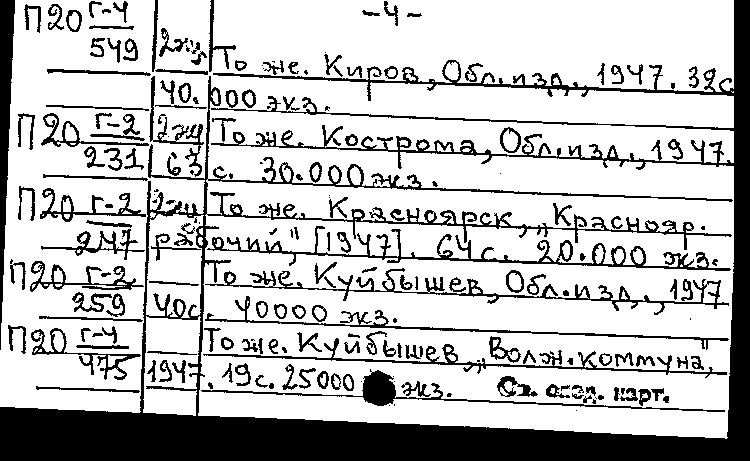 -4-
П20 Г-4
549 2экз То же. Киров, Обл.изд., 1947. 32с
40.000 экз.
П20 Г-2 2экз То же. Кострома, Обл.изд., 1947.
231 63 с. 30.000 экз.
П20 Г-2 2экз То же. Красноярск, „Краснояр.
247 рабочий", [1947]. 64с. 20.000 экз.
П20 Г-2 То же. Куйбышев, Обл.изд., 1947
259 40с. 40000 экз.
П20 Г-4 То же. Куйбышев, „Волж.коммуна",
475 1947. 19с. 25000 экз. См. след. карт.